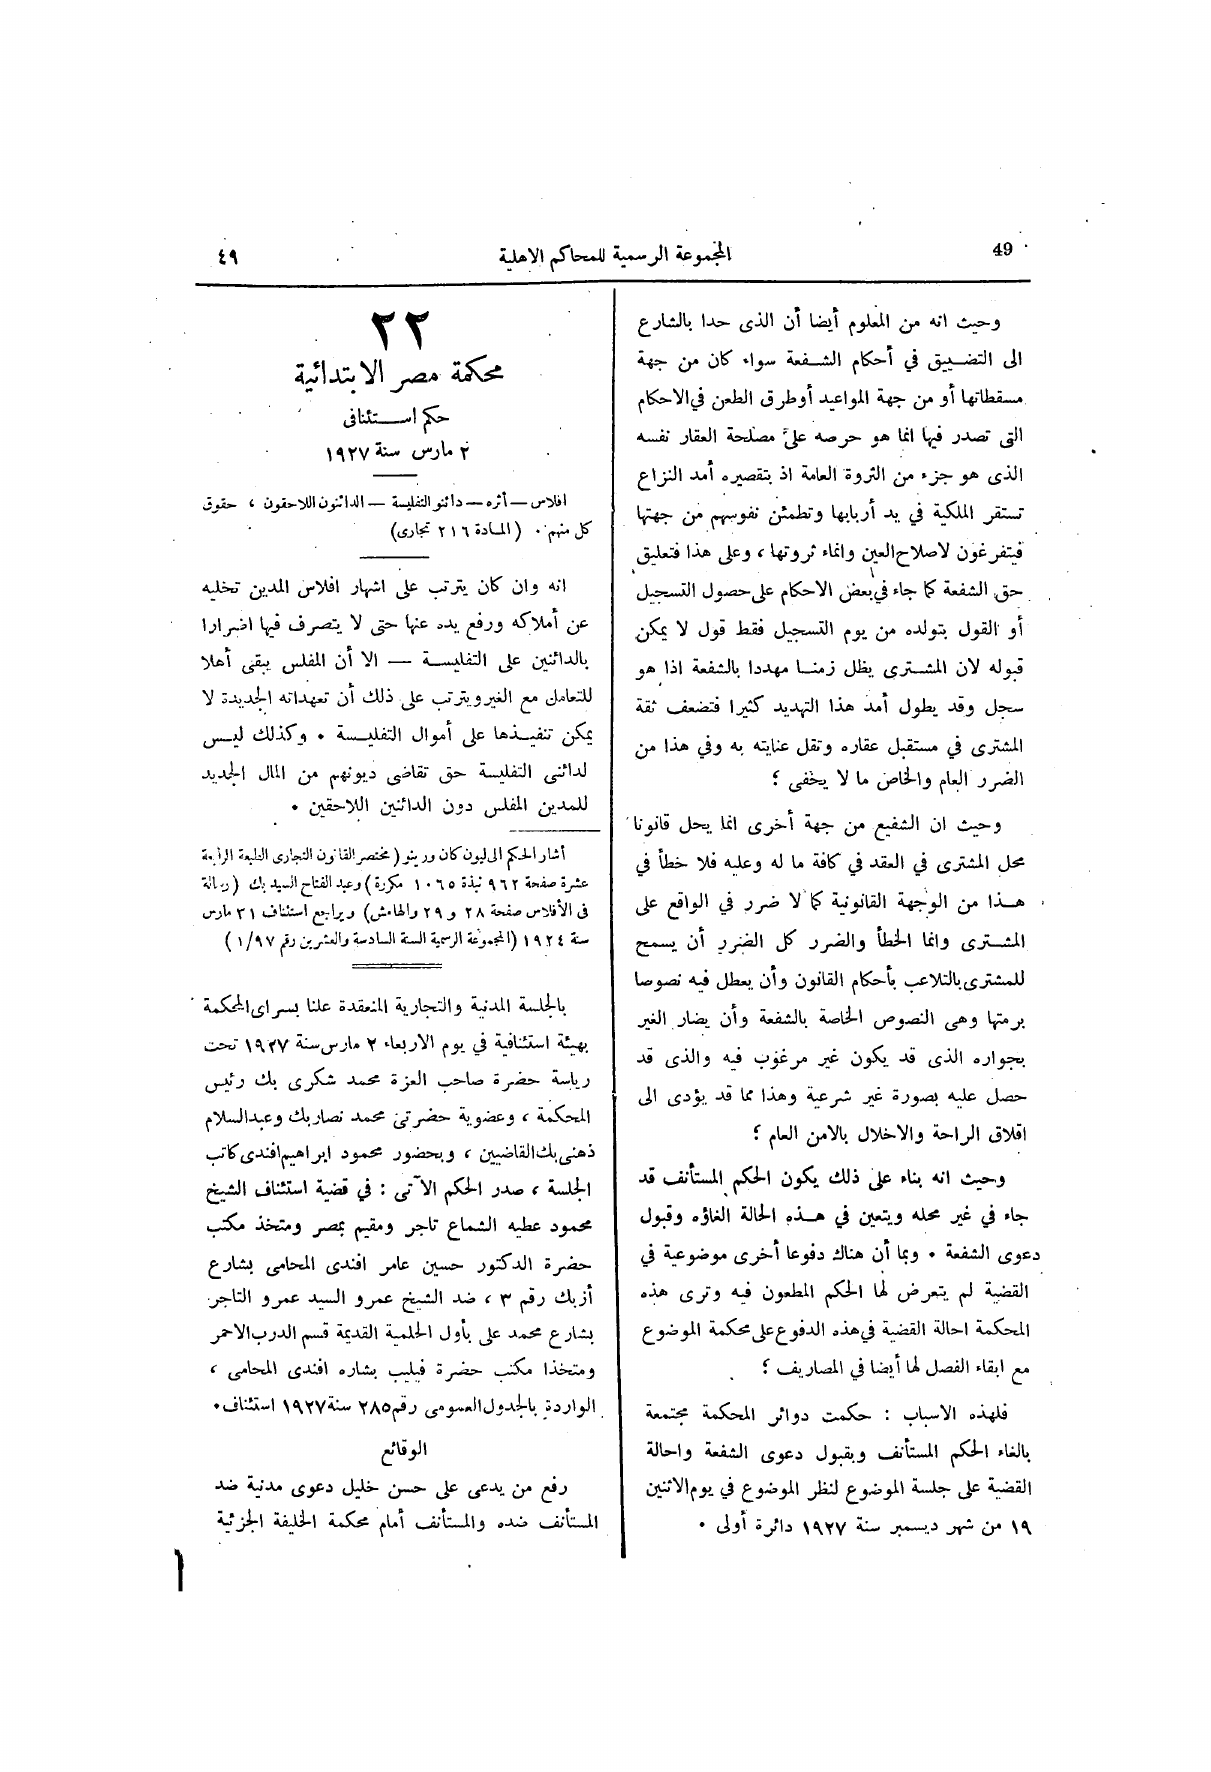 49
المجموعة الرسمية للمحاكم الاهلية
٤٩
وحيث انه من المعلوم أيضا أن الذى حدا بالشارع
الى التضييق في أحكام الشفعة سواء كان من جهة
مسقطاتها أو من جهة المواعيد أو طرق الطعن في الاحكام
التى تصدر فيها انما هو حرصه على مصلحة العقار نفسه
الذى هو جزء من الثروة العامة اذ بتقصيره أمد النزاع
تستقر الملكية في يد أربابها وتطمئن نفوسهم من جهتها
فيتفرغون لاصلاح العين وانماء ثروتها ، وعلى هذا فتعليق
حق الشفعة كما جاء في بعض الاحكام على حصول التسجيل
أو القول بتولده من يوم التسجيل فقط قول لا يمكن
قبوله لان المشترى يظل زمنا مهددا بالشفعة اذا هو
سجل وقد يطول أمد هذا التهديد كثيرا فتضعف ثقة
المشترى في مستقبل عقاره وتقل عنايته به وفي هذا من
الضرر العام والخاص ما لا يخفى ؛
وحيث ان الشفيع من جهة أخرى انما يحل قانونا
محل المشترى في العقد في كافة ما له وعليه فلا خطأ في
هذا من الوجهة القانونية كما لا ضرر في الواقع على
المشترى وانما الخطأ والضرر كل الضرر أن يسمح
للمشترى بالتلاعب بأحكام القانون وأن يعطل فيه نصوصا
برمتها وهى النصوص الخاصة بالشفعة وأن يضار الغير
بجواره الذى قد يكون غير مرغوب فيه والذى قد
حصل عليه بصورة غير شرعية وهذا مما قد يؤدى الى
اقلاق الراحة والاخلال بالامن العام ؛
وحيث انه بناء على ذلك يكون الحكم المستأنف قد
جاء في غير محله ويتعين في هذه الحالة الغاؤه وقبول
دعوى الشفعة . وبما أن هناك دفوعا أخرى موضوعية في
القضية لم يتعرض لها الحكم المطعون فيه وترى هذه
المحكمة احالة القضية في هذه الدفوع على محكمة الموضوع
مع ابقاء الفصل لها أيضا في المصاريف ؛
فلهذه الاسباب : حكمت دوائر المحكمة مجتمعة
بالغاء الحكم المستأنف وبقبول دعوى الشفعة واحالة
القضية على جلسة الموضوع لنظر الموضوع في يوم الاثنين
١٩ من شهر ديسمبر سنة ١٩٢٧ دائرة أولى .
٢٢
محكمة مصر الابتدائية
حكم استئنافى
٢ مارس سنة ١٩٢٧
افلاس — أثره — دائنو التفليسة — الدائنون اللاحقون ، حقوق
كل منهم . (المادة ٢١٦ تجارى)
انه وان كان يترتب على اشهار افلاس المدين تخليه
عن أملاكه ورفع يده عنها حتى لا يتصرف فيها اضرارا
بالدائنين على التفليسة — الا أن المفلس يبقى أهلا
للتعامل مع الغير ويترتب على ذلك أن تعهداته الجديدة لا
يمكن تنفيذها على أموال التفليسة . وكذلك ليس
لدائنى التفليسة حق تقاضى ديونهم من المال الجديد
للمدين المفلس دون الدائنين اللاحقين .
أشار الحكم الى ليون كان ورينو (مختصر القانون التجارى الطبعة الرابعة
عشرة صفحة ٩٦٢ نبذة ١٠٦٥ مكررة) وعبد الفتاح السيد بك (رسالة
فى الأفلاس صفحة ٢٨ و ٢٩ والهامش) ويراجع استئناف ٣١ مارس
سنة ١٩٢٤ (المجموعة الرسمية السنة السادسة والعشرين رقم ١/٩٧)
بالجلسة المدنية والتجارية المنعقدة علنا بسراى المحكمة
بهيئة استئنافية في يوم الاربعاء ٢ مارس سنة ١٩٢٧ تحت
رياسة حضرة صاحب العزة محمد شكرى بك رئيس
المحكمة ، وعضوية حضرتى محمد نصار بك وعبد السلام
ذهنى بك القاضيين ، وبحضور محمود ابراهيم افندى كاتب
الجلسة ، صدر الحكم الآتى : في قضية استئناف الشيخ
محمود عطيه الشماع تاجر ومقيم بمصر ومتخذ مكتب
حضرة الدكتور حسين عامر افندى المحامى بشارع
أزبك رقم ٣ ، ضد الشيخ عمرو السيد عمرو التاجر
بشارع محمد على بأول الحلمية القديمة قسم الدرب الاحمر
ومتخذا مكتب حضرة فيليب بشاره افندى المحامى ،
الواردة بالجدول العمومى رقم ٢٨٥ سنة ١٩٢٧ استئناف .
الوقائع
رفع من يدعى على حسن خليل دعوى مدنية ضد
المستأنف ضده والمستأنف أمام محكمة الخليفة الجزئية